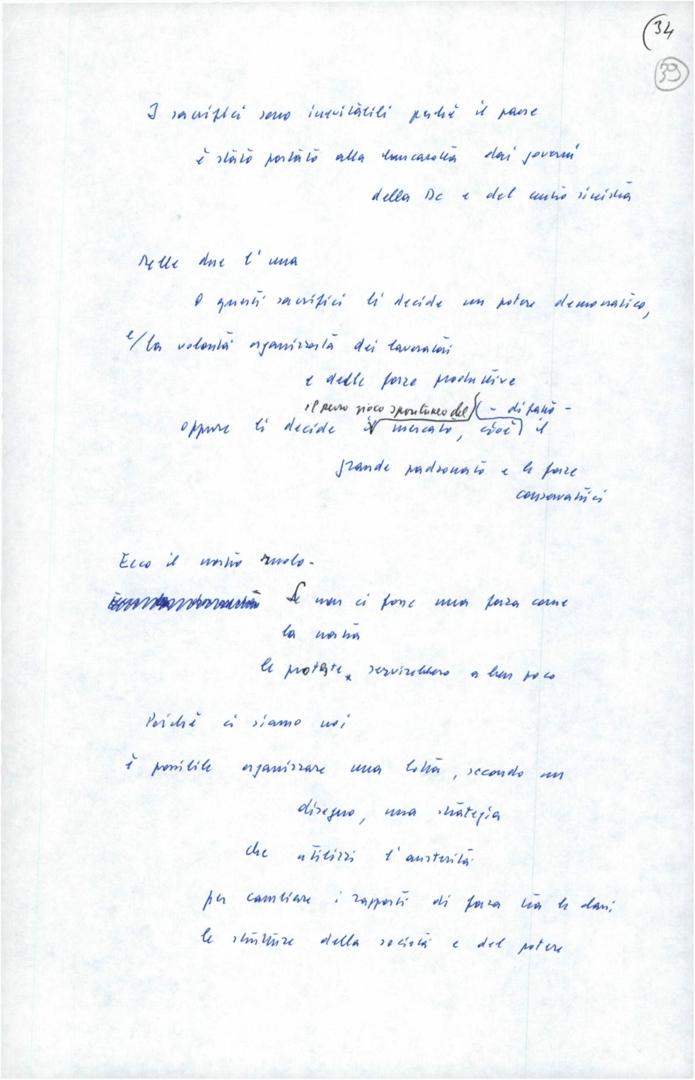 34
39
I sacrifici sono inevitabili perché il paese
è stato portato alla bancarotta dai governi
della Dc e del centro sinistra
Delle due l'una
O questi sacrifici li decide un potere democratico,
e/la volontà organizzata dei lavoratori
e delle forze produttive
il puro gioco spontaneo del (- di fatto -
oppure li decide il mercato, cioè) il
grande padronato e le forze
conservatrici
Ecco il nostro ruolo -
Se non ci fosse una forza come
la nostra
le proteste servirebbero a ben poco
Poiché ci siamo noi
è possibile organizzare una lotta, secondo un
disegno, una strategia
che utilizzi l'austerità
per cambiare i rapporti di forza tra le classi
le strutture della società e del potere